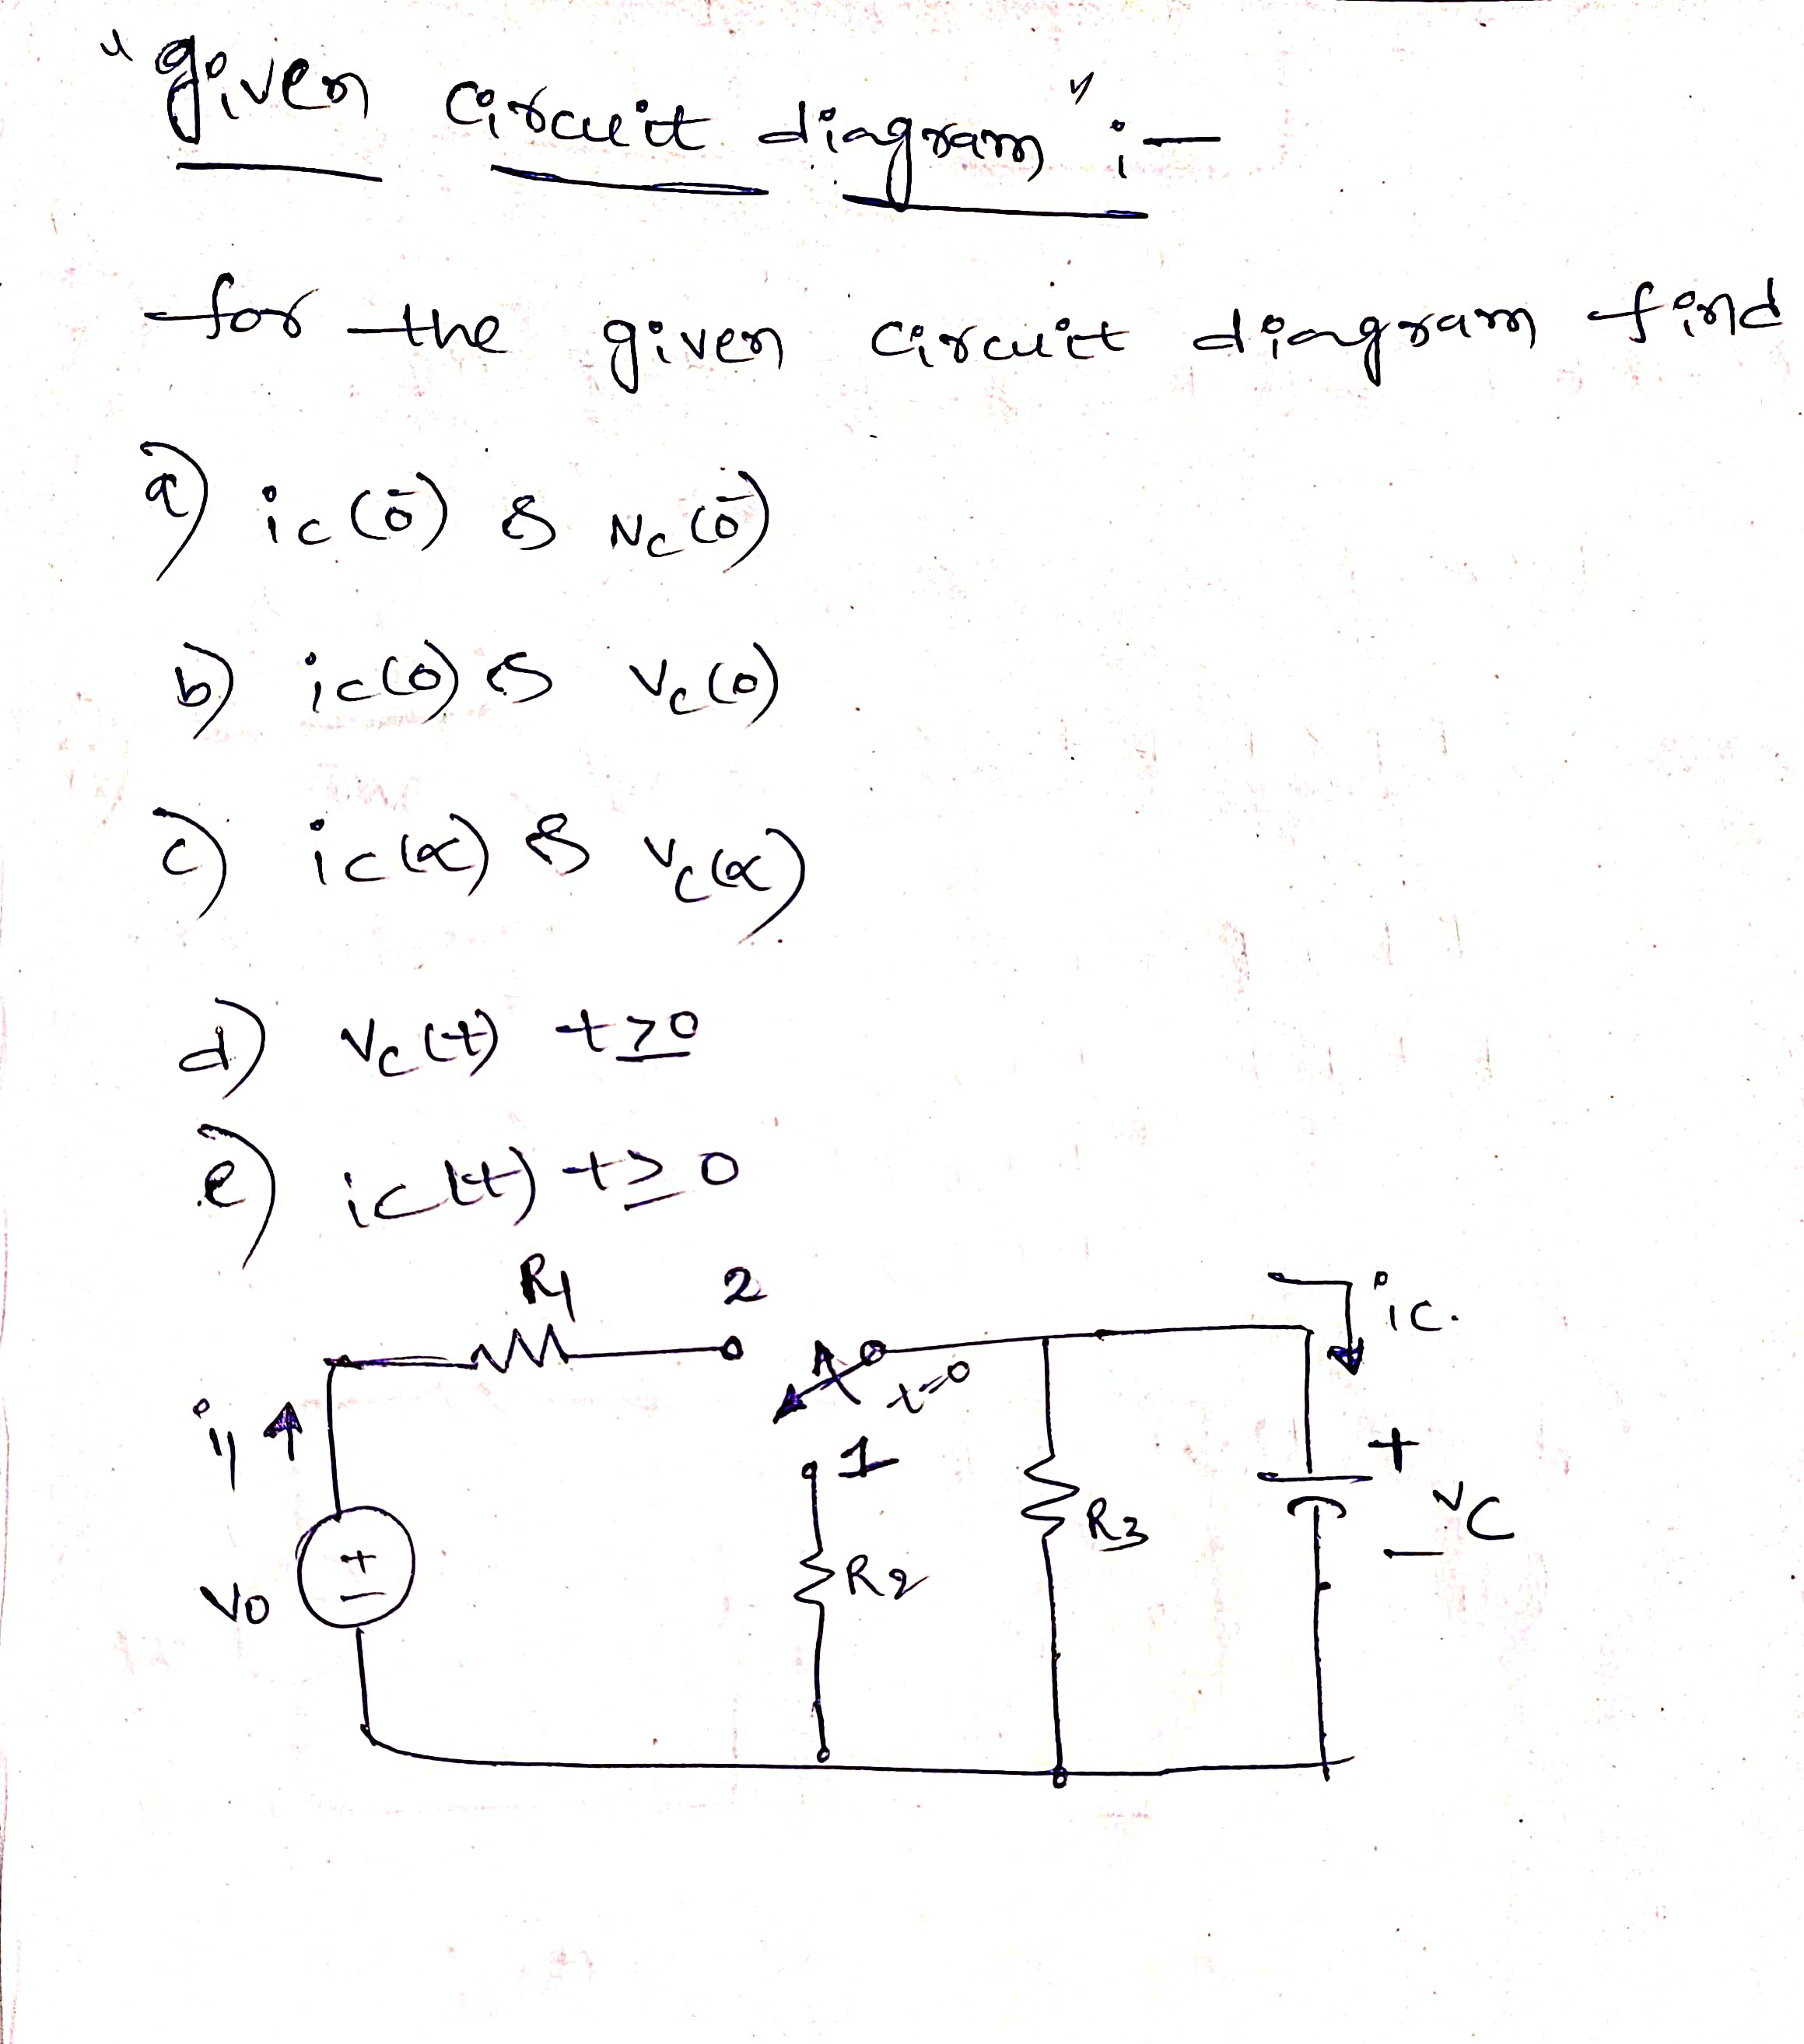 "given circuit diagram" :-
for the given circuit diagram find
a) ic(0̄) & Nc(0̄)
b) ic(0) & Vc(0)
c) ic(∝) & Vc(∝)
d) Vc(t) t≥0
e) ic(t) t≥0
R1 2 ic.
i1 t=0
1 +
R3 VC
V0 + - R2 -